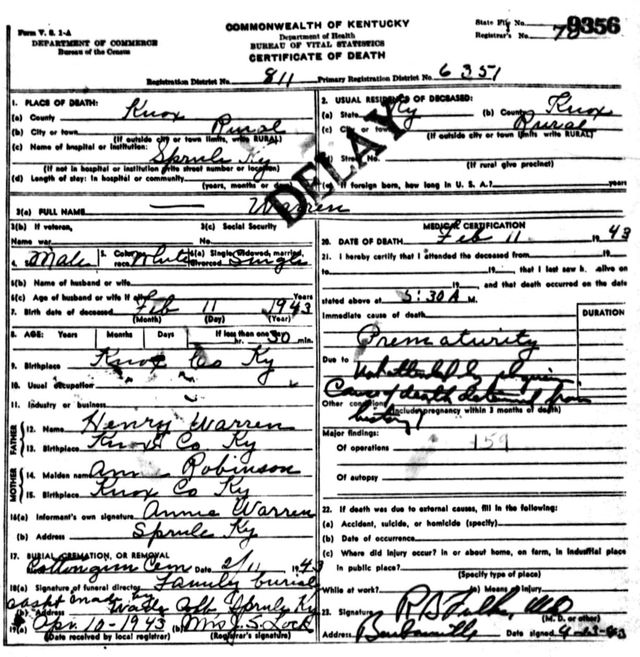 Form V. S. 1-A
DEPARTMENT OF COMMERCE
Bureau of the Census
COMMONWEALTH OF KENTUCKY
Department of Health
BUREAU OF VITAL STATISTICS
CERTIFICATE OF DEATH
State File No. 9356
Registrar's No. 79
Registration District No. 811 Primary Registration District No. 6351
DELAY
1. PLACE OF DEATH:
(a) County Knox
(b) City or town Rural
(If outside city or town limits, write RURAL)
(c) Name of hospital or institution:
Sprule Ky
(If not in hospital or institution write street number or location)
(d) Length of stay: In hospital or community
(years, months or days)
2. USUAL RESIDENCE OF DECEASED:
(a) State Ky (b) County Knox
(c) City or town Rural
(If outside city or town limits, write RURAL)
(d) Street No.
(If rural give precinct)
(e) If foreign born, how long in U. S. A.? years
3(a) FULL NAME — Warren
3(b) If veteran,
Name war
3(c) Social Security
No.
4. Male 5. Color race White 6(a) Single, widowed, married, divorced Single
6(b) Name of husband or wife
6(c) Age of husband or wife if alive Years
7. Birth date of deceased Feb 11 1943
(Month) (Day) (Year)
8. AGE: Years Months Days If less than one day
hr. 30 min.
9. Birthplace Knox Co Ky
10. Usual occupation
11. Industry or business
FATHER
12. Name Henry Warren
13. Birthplace Knox Co Ky
MOTHER
14. Maiden name Annie Robinson
15. Birthplace Knox Co Ky
16(a) Informant's own signature Annie Warren
(b) Address Sprule Ky
17. BURIAL, CREMATION, OR REMOVAL
Cottongim Cem Date 2/11 1943
18(a) Signature of funeral director Family burial
made by
(b) Address Sprule Ky
19(a) Apr. 10-1943 (b) Mrs J. S. Lock
(Date received by local registrar) (Registrar's signature)
MEDICAL CERTIFICATION
20. DATE OF DEATH Feb 11 1943
21. I hereby certify that I attended the deceased from
19 , to 19 , that I last saw h. alive on
19 , and that death occurred on the date
stated above at 5:30 A M.
Immediate cause of death
DURATION
Prematurity
Due to Unattended by physician
Cause of death determined from
history
Other conditions
(Include pregnancy within 3 months of death)
Major findings:
Of operations 159
Of autopsy
22. If death was due to external causes, fill in the following:
(a) Accident, suicide, or homicide (specify)
(b) Date of occurrence
(c) Where did injury occur? in or about home, on farm, in industrial place
in public place?
(Specify type of place)
While at work? (e) Means of injury
23. Signature
(M. D. or other)
Address Barbourville Date signed 4-23-43